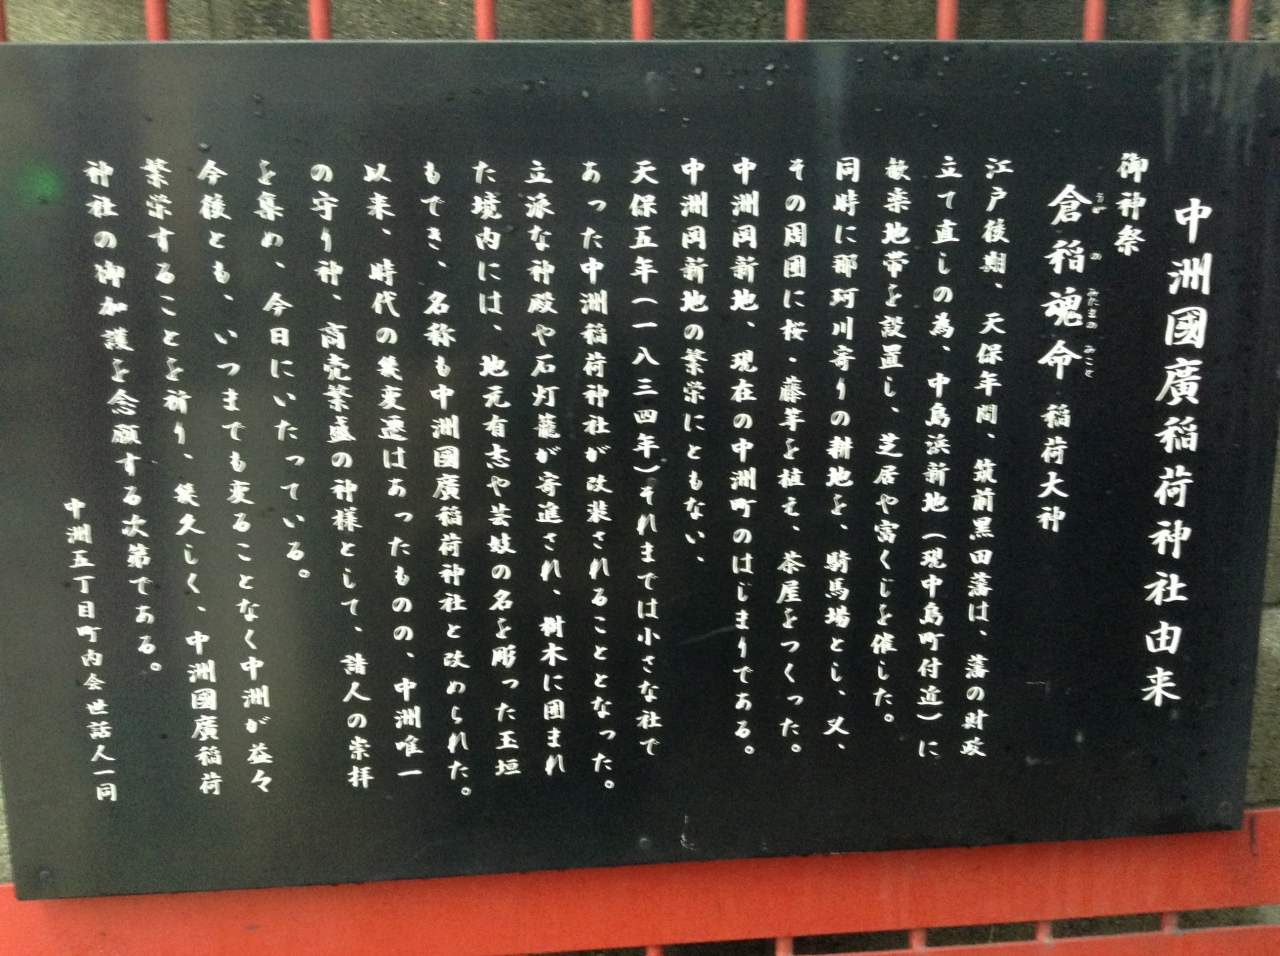 中洲國廣稲荷神社由来
御神祭
倉稲魂命 稲荷大神
うが の みたまの みこと
江戸後期、天保年間、筑前黒田藩は、藩の財政
立て直しの為、中島浜新地(現中島町付近)に
歓楽地帯を設置し、芝居や富くじを催した。
同時に那珂川寄りの耕地を、騎馬場とし、又、
その周囲に桜・藤等を植え、茶屋をつくった。
中洲岡新地、現在の中洲町のはじまりである。
中洲岡新地の繁栄にともない、
天保五年(一八三四年)それまでは小さな社で
あった中洲稲荷神社が改装されることとなった。
立派な神殿や石灯籠が寄進され、樹木に囲まれ
た境内には、地元有志や芸妓の名を彫った玉垣
もでき、名称も中洲國廣稲荷神社と改められた。
以来、時代の幾変遷はあったものの、中洲唯一
の守り神、商売繁盛の神様として、諸人の崇拝
を集め、今日にいたっている。
今後とも、いつまでも変ることなく中洲が益々
繁栄することを祈り、幾久しく、中洲國廣稲荷
神社の御加護を念願する次第である。
中洲五丁目町内会世話人一同